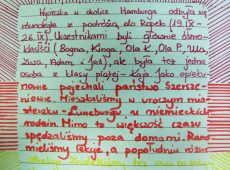 Wycieczka w okolice Hamburga odbyła się
z podróżą do Ropek (19.IX -
26.IX). Uczestnikami byli głównie ósmo-
klasiści (Bogna, Kinga, Ola K, Ola P, Ula,
Zuza, Adam i Jaś), ale była też jedna
osoba z klasy piątej - Kaja. Jako opieku-
nowie pojechali państwo Szersze-
niowie. Mieszkaliśmy w uroczym mia-
steczku - Lüneburgu u niemieckich
rodzin. Mimo to większość czasu
spędzaliśmy poza domami. Rano
mieliśmy lekcje, a popołudniu różne